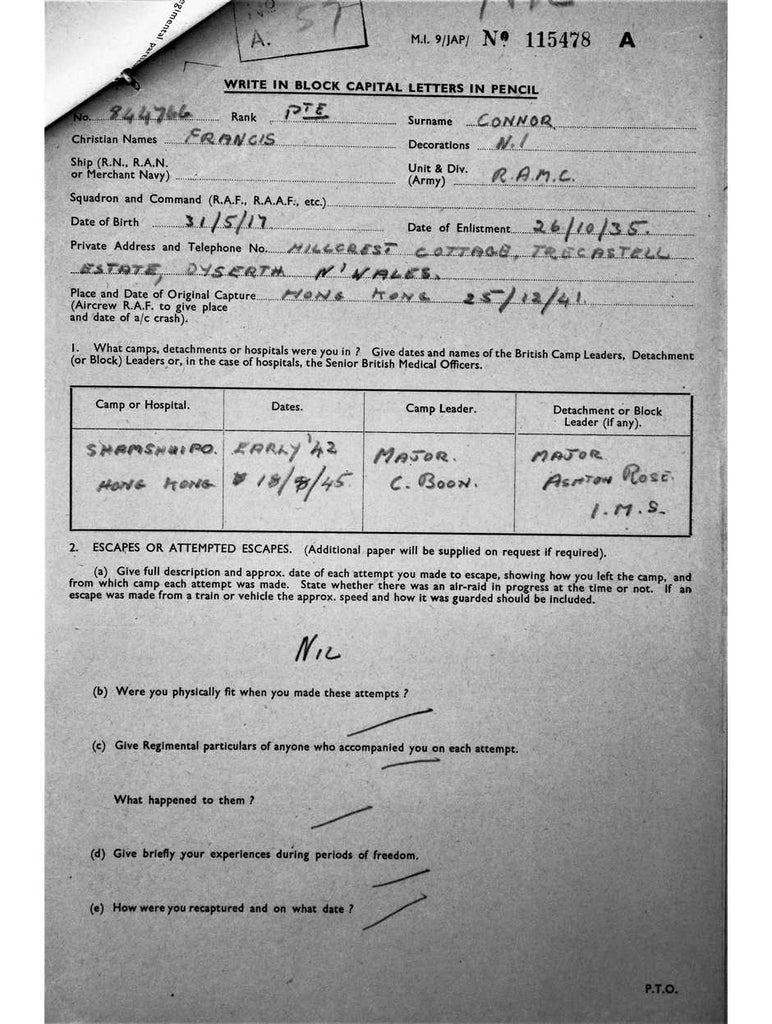 egimental partic
No
A. 57
M.I. 9/JAP/ No 115478 A
WRITE IN BLOCK CAPITAL LETTERS IN PENCIL
No. 844766 Rank PTE Surname CONNOR
Christian Names FRANCIS Decorations N.I
Ship (R.N., R.A.N. or Merchant Navy) Unit & Div. (Army) R.A.M.C.
Squadron and Command (R.A.F., R.A.A.F., etc.)
Date of Birth 31/5/17 Date of Enlistment 26/10/35.
Private Address and Telephone No. HILLCREST COTTAGE, TRECASTELL
ESTATE, DYSERTH N'WALES.
Place and Date of Original Capture HONG KONG 25/12/41.
(Aircrew R.A.F. to give place
and date of a/c crash).
1. What camps, detachments or hospitals were you in ? Give dates and names of the British Camp Leaders, Detachment
(or Block) Leaders or, in the case of hospitals, the Senior British Medical Officers.
Camp or Hospital. Dates. Camp Leader. Detachment or Block Leader (if any).
SHAMSHUIPO. EARLY '42 MAJOR. MAJOR
HONG KONG 18/8/45 C. BOON. ASHTON ROSE.
I.M.S.
2. ESCAPES OR ATTEMPTED ESCAPES. (Additional paper will be supplied on request if required).
(a) Give full description and approx. date of each attempt you made to escape, showing how you left the camp, and
from which camp each attempt was made. State whether there was an air-raid in progress at the time or not. If an
escape was made from a train or vehicle the approx. speed and how it was guarded should be included.
NIL
(b) Were you physically fit when you made these attempts ?
(c) Give Regimental particulars of anyone who accompanied you on each attempt.
What happened to them ?
(d) Give briefly your experiences during periods of freedom.
(e) How were you recaptured and on what date ?
P.T.O.